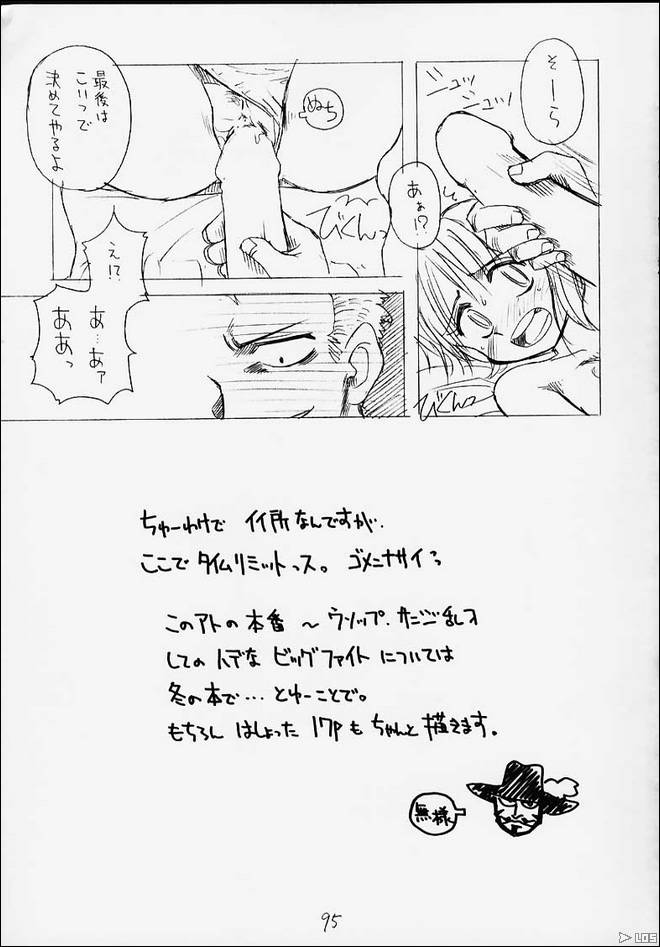 そーら
ジュッ
ジュッ
あぁ!?
びくんっ
最後は
こいつで
決めてやるよ
ぬち
びくんっ
え!?
あ…あァ
ああっ
ちゅーわけで イイ所なんですが、
ここで タイムリミットっス。 ゴメンナサイっ
このアトの本番 〜 ウソップ、サンジ乱入
しての ハデな ビッグファイト については
冬の本で… とゆーことで。
もちろん はしょった 17Pも ちゃんと 描きます。
無様
95
LOS